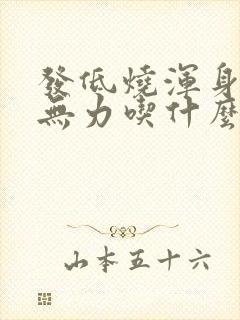 發低燒渾身
無力喫什麼
山本五十六